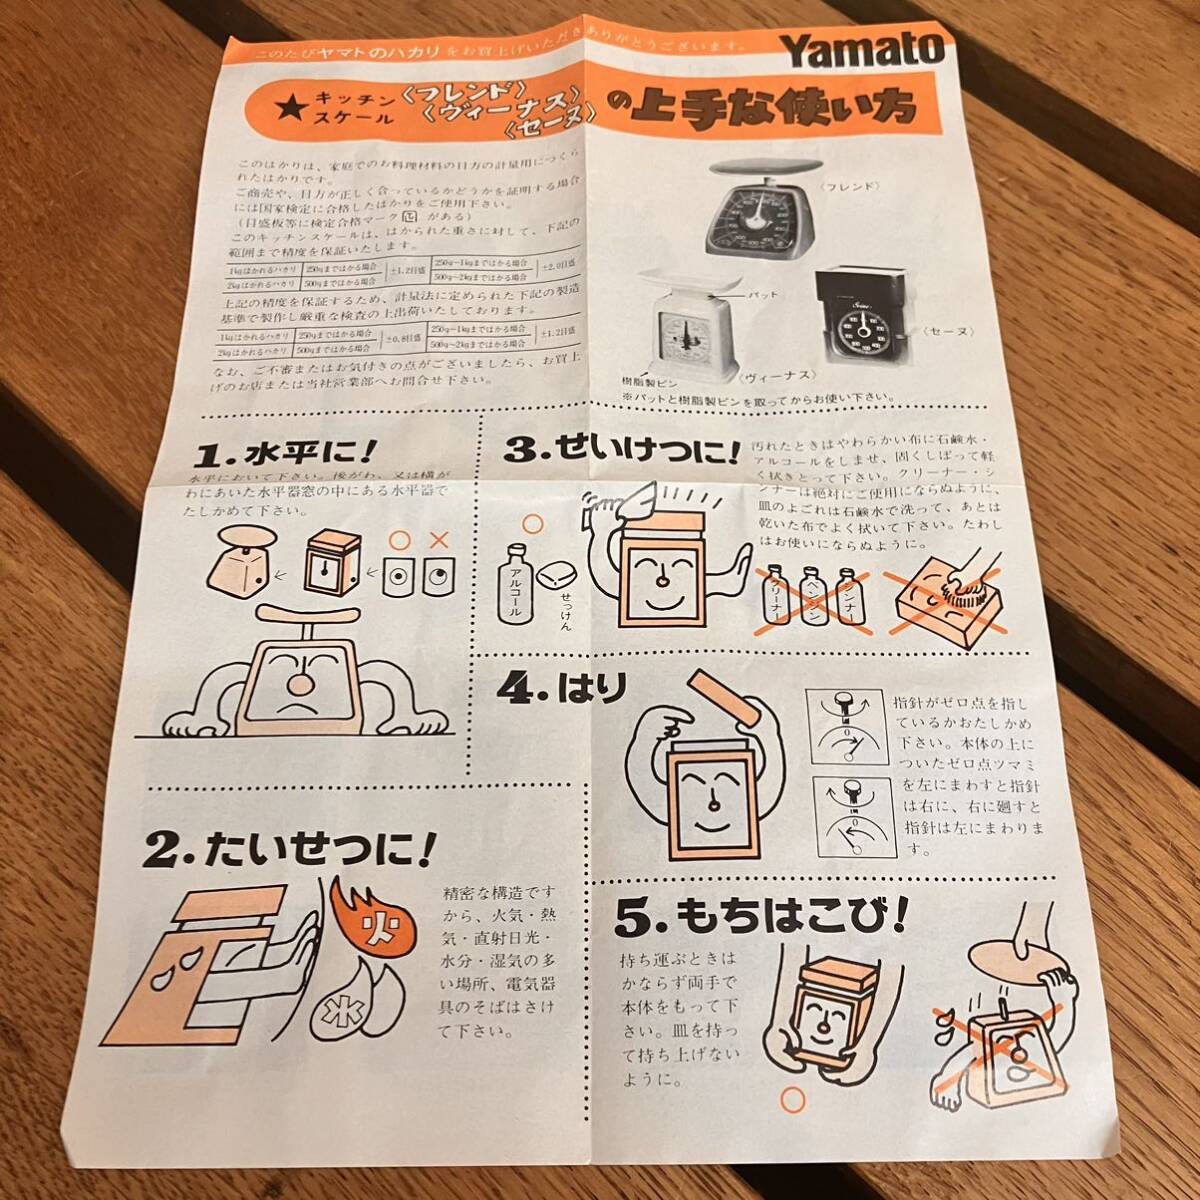 このたびヤマトのハカリをお買上げいただきありがとうございます。
Yamato
★キッチンスケール〈フレンド〉〈ヴィーナス〉〈セーヌ〉の上手な使い方
このはかりは、家庭でのお料理材料の目方の計量用につくら
れたはかりです。
ご商売や、目方が正しく合っているかどうかを証明する場合
には国家検定に合格したはかりをご使用下さい。
(目盛板等に検定合格マーク 正 がある)
このキッチンスケールは、はかられた重さに対して、下記の
範囲まで精度を保証いたします。
1kgはかれるハカリ 250gまではかる場合 ±1.2目盛 250g~1kgまではかる場合 ±2.0目盛
2kgはかれるハカリ 500gまではかる場合 500g~2kgまではかる場合
上記の精度を保証するため、計量法に定められた下記の製造
基準で製作し厳重な検査の上出荷いたしております。
1kgはかれるハカリ 250gまではかる場合 ±0.8目盛 250g~1kgまではかる場合 ±1.2目盛
2kgはかれるハカリ 500gまではかる場合 500g~2kgまではかる場合
なお、ご不審またはお気付きの点がございましたら、お買上
げのお店または当社営業部へお問合せ下さい。
〈フレンド〉
パット
〈セーヌ〉
〈ヴィーナス〉
樹脂製ピン
※パットと樹脂製ピンを取ってからお使い下さい。
1.水平に!
水平において下さい。後がわ、又は横が
わにあいた水平器窓の中にある水平器で
たしかめて下さい。
○ ×
2.たいせつに!
精密な構造です
から、火気・熱
気・直射日光・
水分・湿気の多
い場所、電気器
具のそばはさけ
て下さい。
火
氷
3.せいけつに!
汚れたときはやわらかい布に石鹸水・
アルコールをしませ、固くしぼって軽
く拭きとって下さい。クリーナー・シ
ンナーは絶対にご使用にならぬように、
皿のよごれは石鹸水で洗って、あとは
乾いた布でよく拭いて下さい。たわし
はお使いにならぬように。
○
アルコール
せっけん
クリーナー
ベンジン
シンナー
4.はり
指針がゼロ点を指し
ているかおたしかめ
下さい。本体の上に
ついたゼロ点ツマミ
を左にまわすと指針
は右に、右に廻すと
指針は左にまわりま
す。
0
0
5.もちはこび!
持ち運ぶときは
かならず両手で
本体をもって下
さい。皿を持っ
て持ち上げない
ように。
○